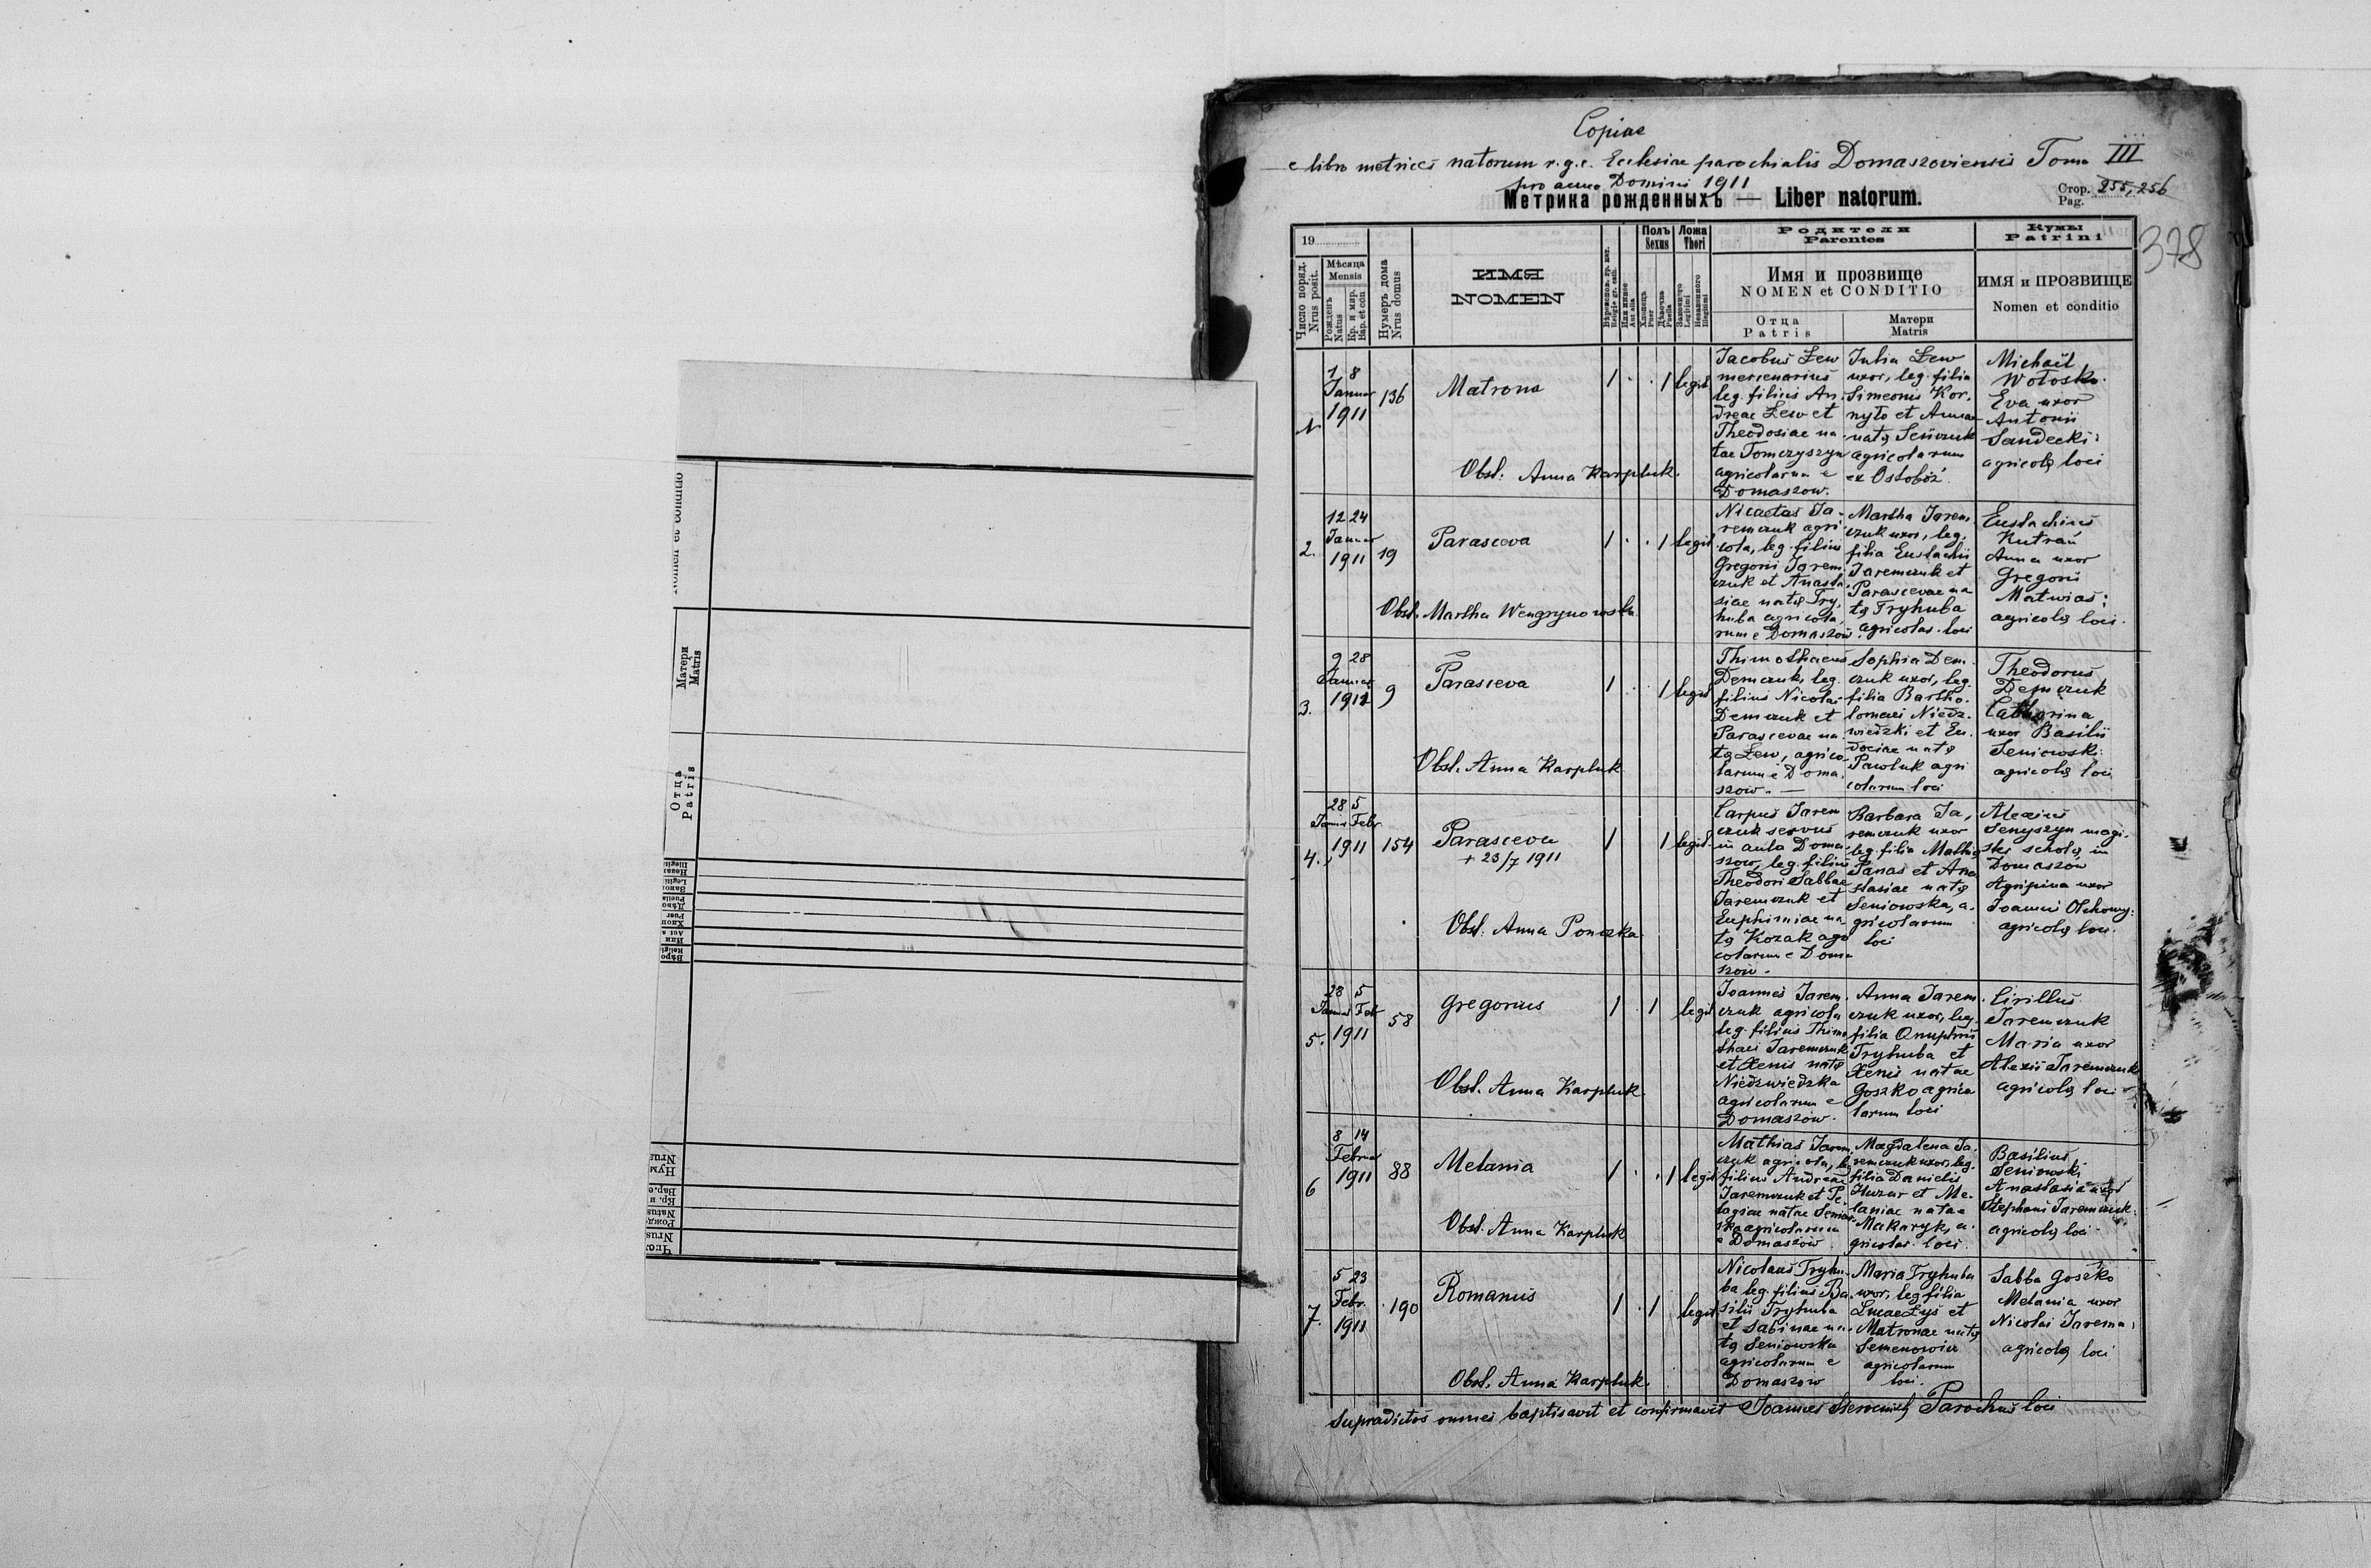 Copiae
e libro metrices natorum r.g.c. Ecclesiae parochialis Domaszoviensis Tom III
pro anno Domini 1911
Метрика рожденныхъ — Liber natorum.
Стор. 255, 256
Pag.
378
19
Число поряд.
Nrus posit.
Мѣсяца
Mensis
Рожденъ
Natus
Кр. и мир.
Bap. et con
Нумеръ дома
Nrus domus
ИМЯ
NOMEN
Религ gr. cath.
Или инное
Aut alia
Полъ
Sexus
Хлопецъ
Puer
Дѣвочка
Puella
Ложа
Thori
Законного
Legitimi
Незаконного
Illegitimi
Родители
Parentes
Имя и прозвище
NOMEN et CONDITIO
Отца
Patris
Матери
Matris
Кумы
Patrini
ИМЯ и ПРОЗВИЩЕ
Nomen et conditio
1.
1 8
Januar
1911
136
Matrona
1 . . 1 legit
Obst: Anna Karpluk.
Jacobus Łew
mercenarius
leg. filius An-
dreae Łew et
Theodosiae na
tae Tomczyszyn
agricolarum e
Domaszow.
Julia Łew
uxor, leg. filia
Simeonis Kor.
nyło et Annae
agricolarum
Michaël
Wołosko.
Eva uxor
Antonii
Sandecki:
agricolę loci
2.
12 24
Januar
1911
19
Parasceva
1 . . 1 legit
Obst. Martha Wengrynowska
Nicaetas Ja-
remczuk agri-
cola, leg. filius
Gregorii Jarem
czuk et Anasta
siae natę Try,
huba agricola,
rum e Domaszow.
Martha Jarem
czuk uxor, leg.
filia Eustachii
Jaremczuk et
Parascevae na
tę Tryhuba
agricolar. loci
Eustachius
Anna uxor
Gregorii
Matwias:
agricolę loci.
3.
9 28
Januar
9
Parasceva
1 . . 1 legit
Obst. Anna Karpluk
Thimothaeus
Demczuk, leg.
filius Nicolai
Demczuk et
Parascevae na
tę Łew, agrico-
larum e Doma.
szow. —
Sophia Dem
czuk uxor, leg.
filia Bartho.
lomaei Niedź.
wiedzki et Eu.
dociae natę
Pawluk agri
colarum loci
Theodorus
Demczuk
Catharina
uxor Basilii
Seniowski:
agricolę loci
4.
28 5
Januar Febr
1911
154
Parasceva
+ 23/7 1911
1 1 legit.
Obst. Anna Ponczka
Carpus Jarem
czuk servus
in aula Doma
szow, leg. filius
Theodori Sabbae
Jaremczuk et
Euphimiae na
tę Kozak agri
colarum e Doma
szow.
Barbara Ja,
remczuk uxor
leg. filia Mathię
Panas et Ana
stasiae natę
Seniowska, a.
gricolarum
loci
Alexius
Senyszyn magi.
ster scholę in
Domaszow
Agripina uxor
agricolę loci.
5.
28 5
Januar Febr
1911
58
Gregorius
1 . 1 legit
Obst. Anna Karpluk.
Joannes Jarem.
czuk agricola
leg. filius Thimo
thaei Jaremczuk
et Xenis natę
Niedzwiedzka
agricolarum e
Domaszow.
Anna Jarem.
czuk uxor, leg.
filia Onuphrii
Tryhuba et
Xenis natae
Goszko agrico
larum loci
Cirillus
Jaremczuk
Maria uxor
Alexii Jaremczuk
agricolę loci
6
8 14
Februar
1911
88
Melania
1 . . 1 legit
Obst. Anna Karpluk
Mathias Jarem
czuk agricola, leg
filius Andreae
Jaremczuk et Pe.
lagiae natae Seniow
ska agricolarum
e Domaszow
Magdalena Ja.
remczuk uxor, leg.
filia Danielis
Huzar et Me.
laniae natae
Makaryk, a.
gricolar. loci.
Basilius
Seniowski
Anastasia uxor
Stephani Jaremczuk:
agricolę loci
7.
5 23
Febr.
1911
190
Romanus
1 . 1 legit
Obst. Anna Karpluk.
Nicolaus Tryhu-
ba leg. filius Ba.
silii Tryhuba
et Sabinae na
tę Seniowska
agricolarum e
Domaszow
Maria Tryhuba
uxor, leg. filia
Lucae Łyś et
Matronae natę
Semenowicz
agricolarum
loci.
Sabba Goszko
Melania uxor
Nicolai Jarema:
agricolę loci
Supradictos omnes baptisavit et confirmavit Joannes Parochus loci
Матери
Matris
Отца
Patris